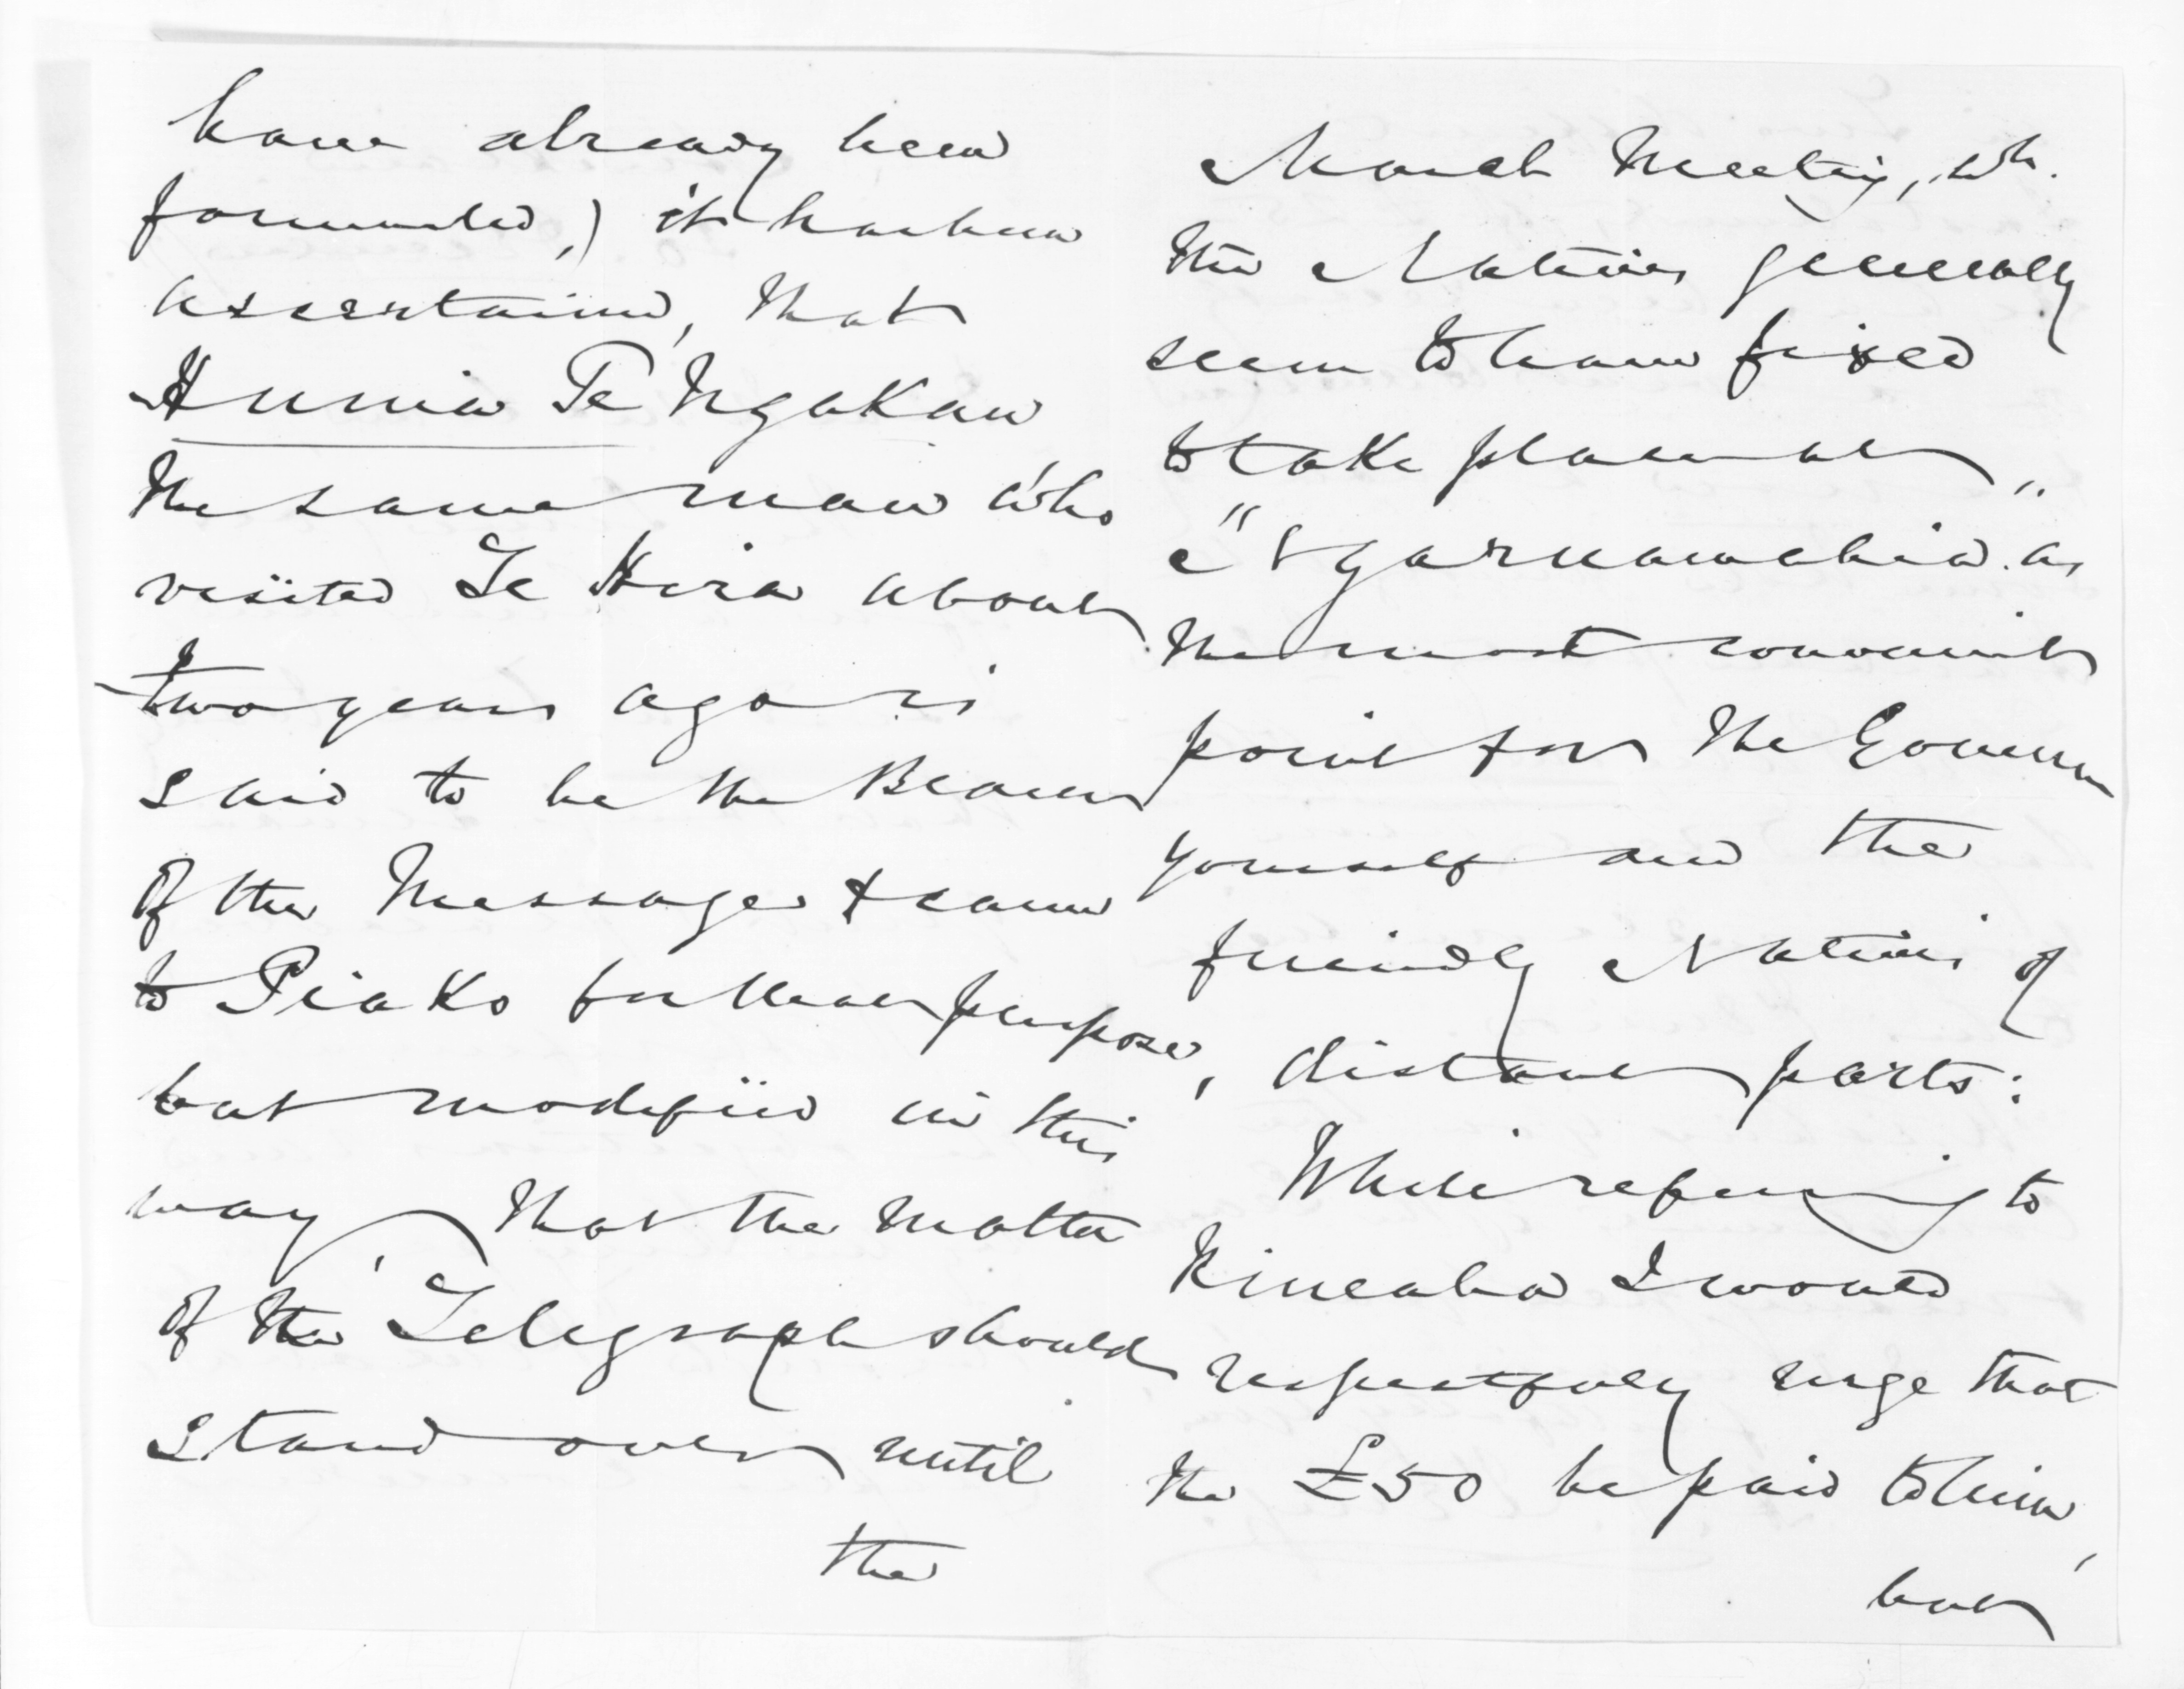 have already been
forwarded,) it has been
ascertained, that
Hunia Te Ngakau
the same man who
visited Te Hira about
two years ago is
said to be the Bearer
of the Message & came
to Piako for that purpose,
but modified in this
way, that the matter
of the Telegraph should
stand over until
the
March Meeting, wh.
the Natives generally
seem to have fixed
to take place at
"Ngaruawahia" as
the most convenient
point for the Governor
yourself and the
friendly Natives of
distant parts:
While referring to
Kineaha I would
respectfully urge that
the £50 be paid to him,
but